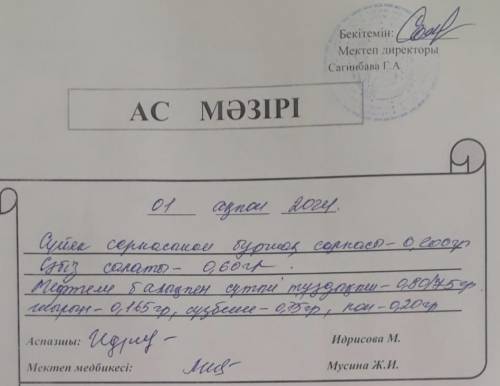 Бекітемін:
Мектеп директоры
Сагинбава Г.А
АС МӘЗІРІ
01 ақпан 2024.
Сүйек сорпасынан бұршақ сорпасы - 0,200гр
Сәбіз салаты - 0,60гр.
тұздықпен - 0,80/75гр
макарон - 0,165гр, сүзбеше - 0,75гр, нан - 0,20гр
Аспазшы: Идрисова М.
Мектеп медбикесі: Мусина Ж.И.